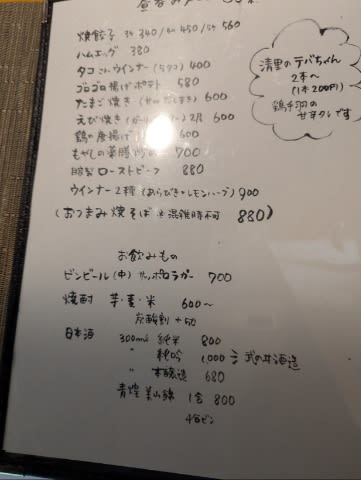 焼餃子 3ケ 340/4ケ 450/5ケ 560
ハムエッグ 380
タコさんウインナー(5タコ) 400
ゴロゴロ揚げポテト 580
たまご焼き 600
えび焼き 2尾 600
鶏の唐揚げ 600
もやしの薬膳炒め 700
ローストビーフ 880
ウインナー2種(あらびき・レモンハーブ) 900
(おつまみ焼そば ※混雑時不可 880)
清里のテバちゃん
2本〜
(1本200円)
鶏手羽の
甘辛タレです
お飲みもの
ビンビール(中) サッポロラガー 700
焼酎 芋・麦・米 600〜
炭酸割 +50
日本酒 300ml 純米 800
〃 純吟 1,000 武の井酒造
〃 本醸造 680
青煌 美山錦 1合 800
4合ビン